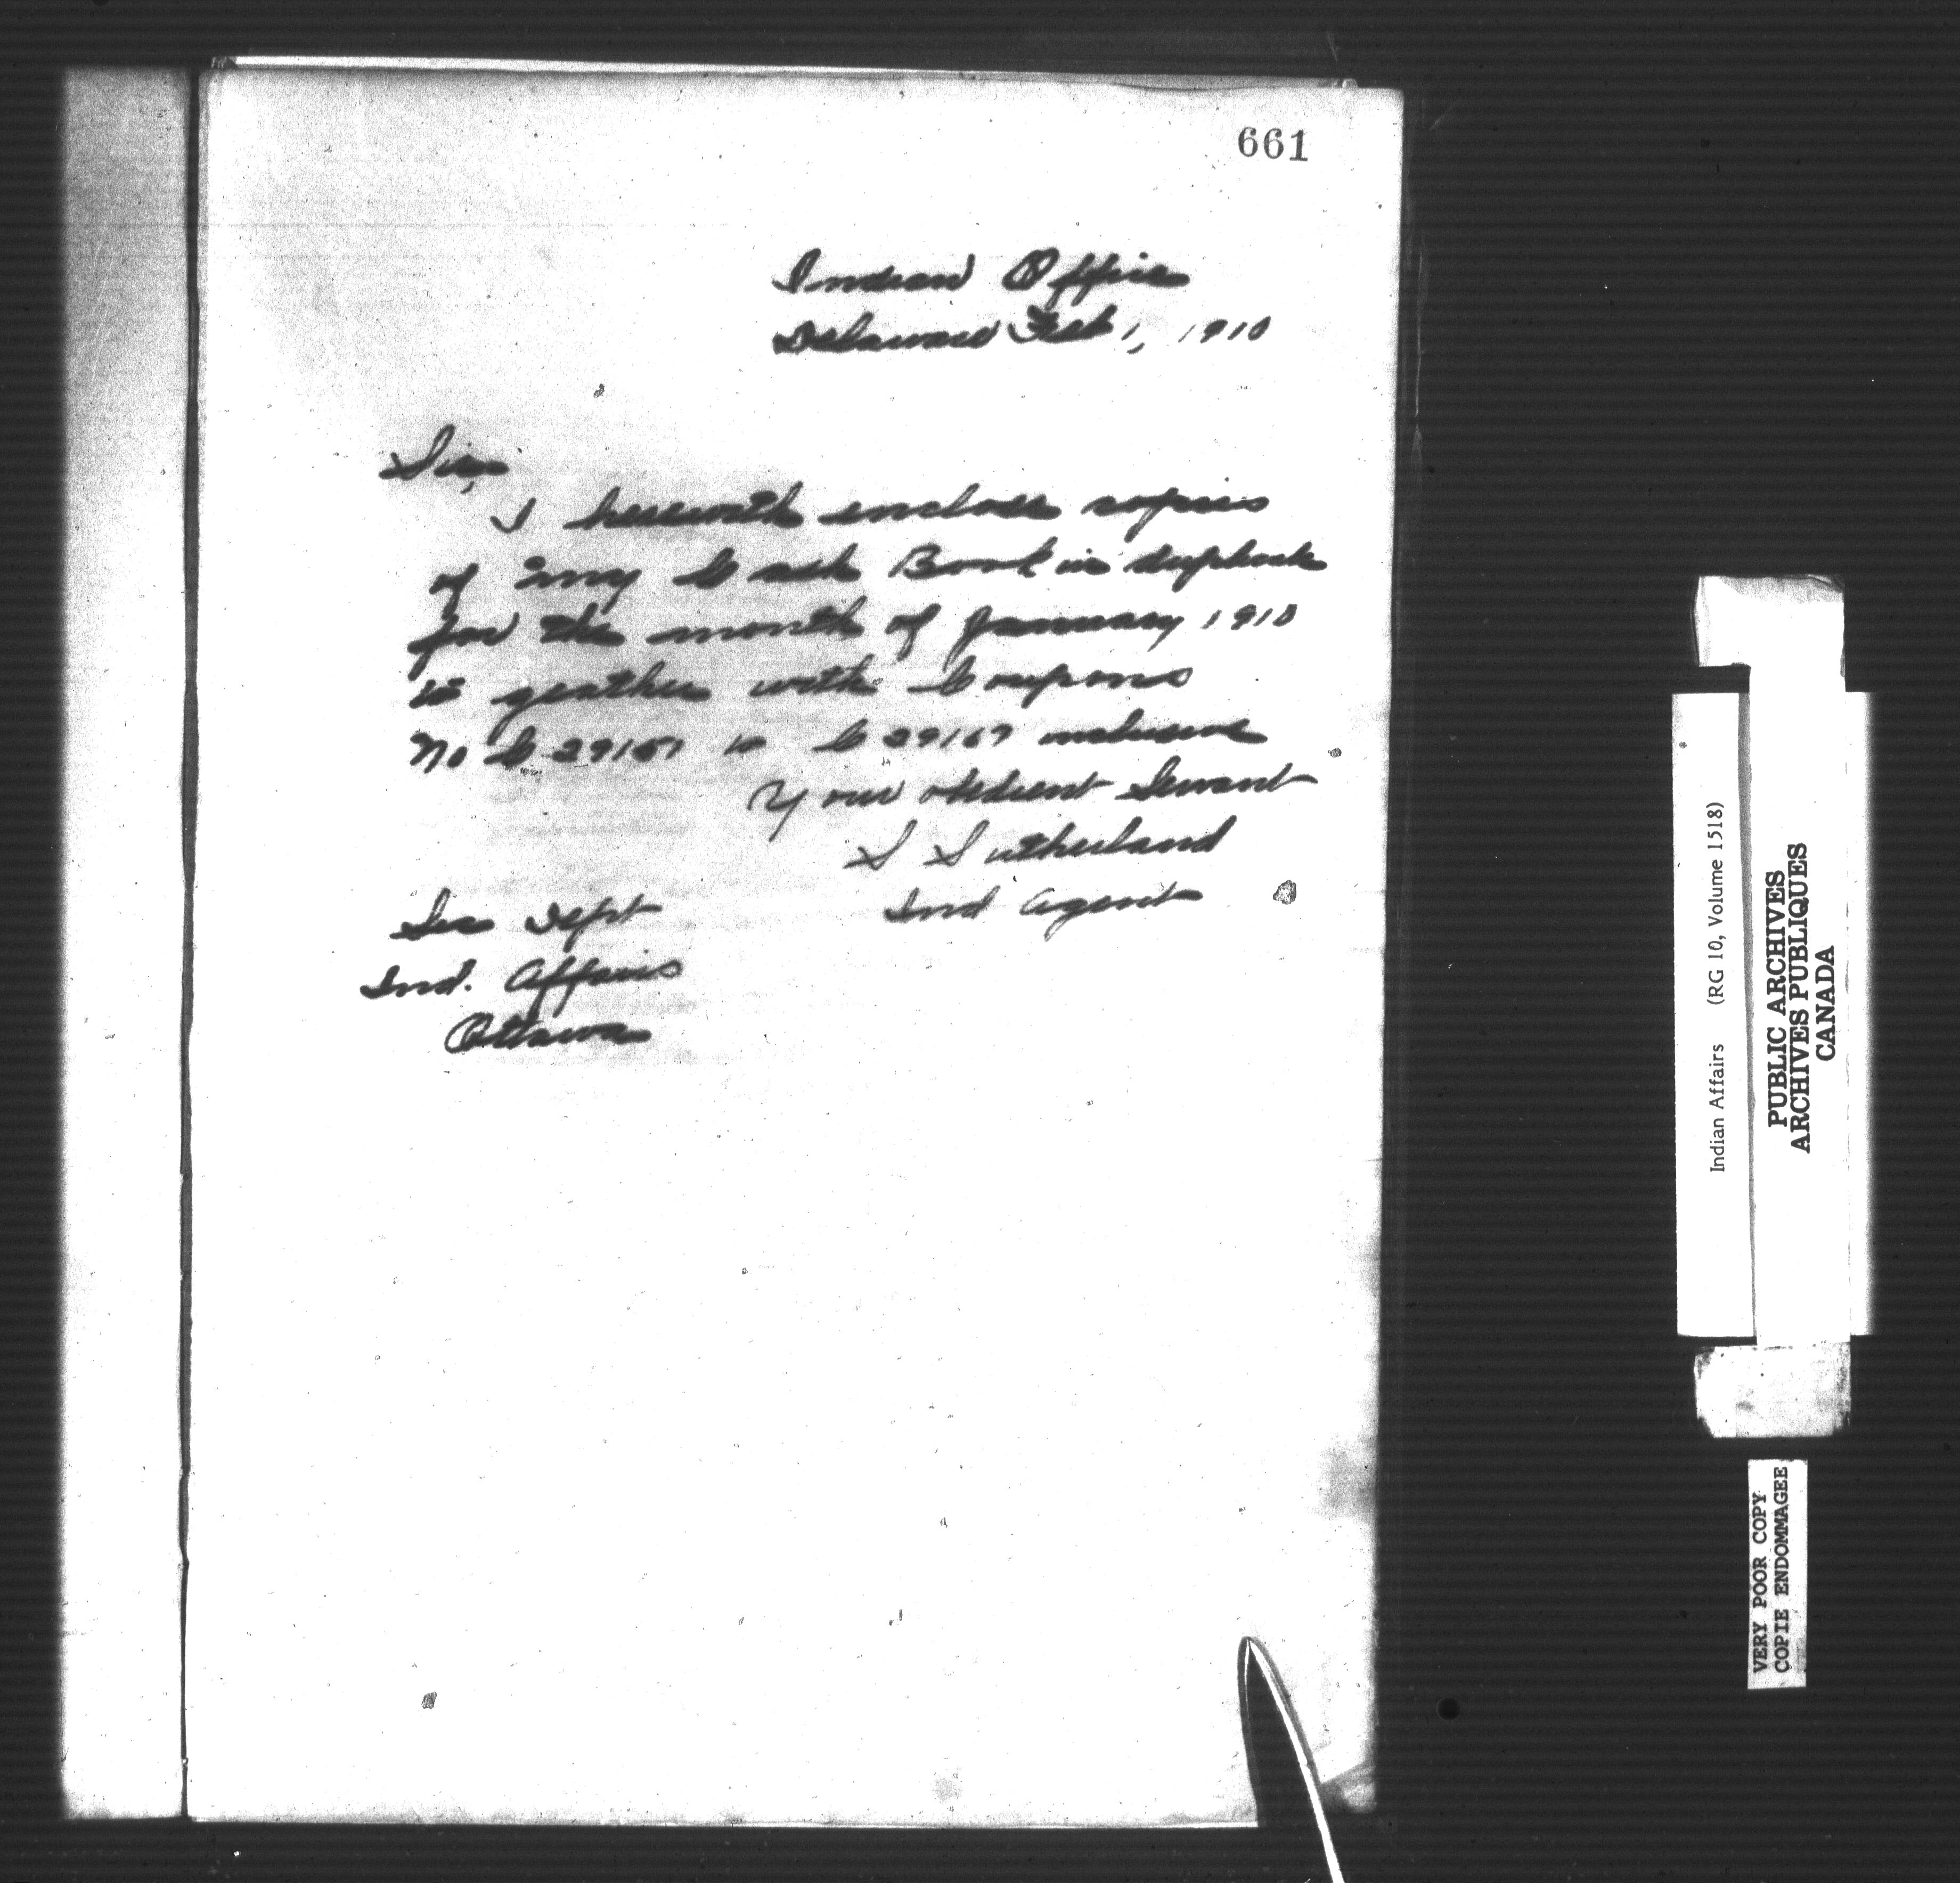 661
Indian Office
Delaware Feb 1, 1910
Sir,
I herewith enclose copies
of my Cash Book in duplicate
for the month of January 1910
to geather with Coupons
No C 29157 to C 29167 inclusive
Your obedient Servant
S Sutherland
Ind Agent
Sec Dept
Ind. Affairs
Ottawa
Indian Affairs (RG 10, Volume 1518)
PUBLIC ARCHIVES
ARCHIVES PUBLIQUES
CANADA
VERY POOR COPY
COPIE ENDOMMAGEE